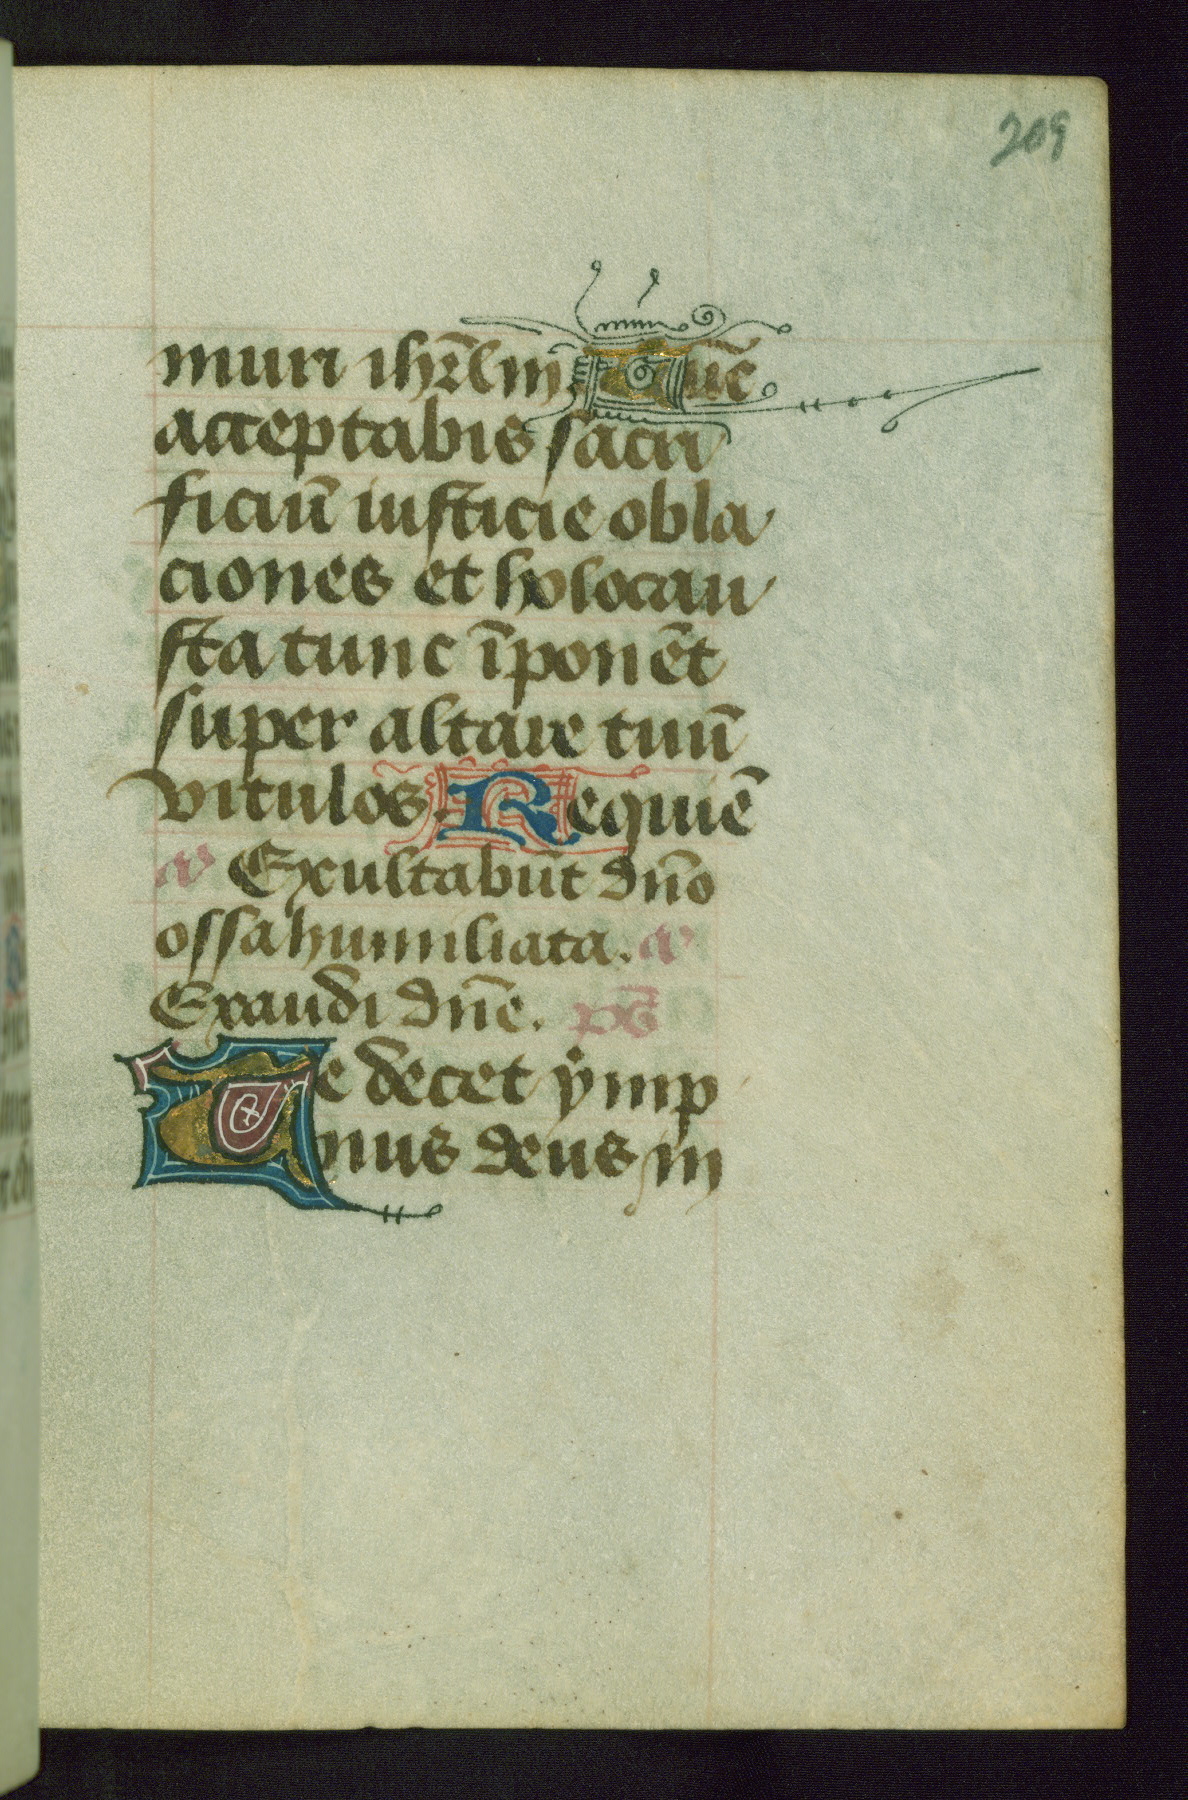 209
muri ihr̄lm̄. Tūc
acceptabis sacri
ficiū iusticie obla
ciones et holocau
sta tunc īponēt
super altare tuū
vitulos. Requiē
a Exultabūt dn̄o
ossa humiliata. a
Exaudi dn̄e. ps̄
Te decet ẏmp
nus deus in